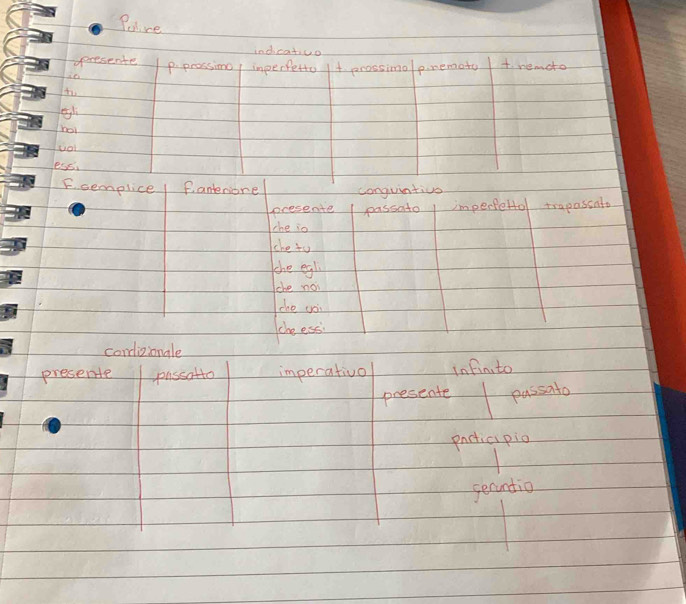 indicativo
presente p. prossimo imperfetto t prossimo p. remoto t. remoto
io
tu
egli
noi
voi
essi
F. semplice F. anteriore congiuntivo
presente passato imperfetto trapassato
che io
che tu
che egli
che noi
che voi
che essi
condizionale
presente passatto imperativo infinito
presente passato
participio
gerundio